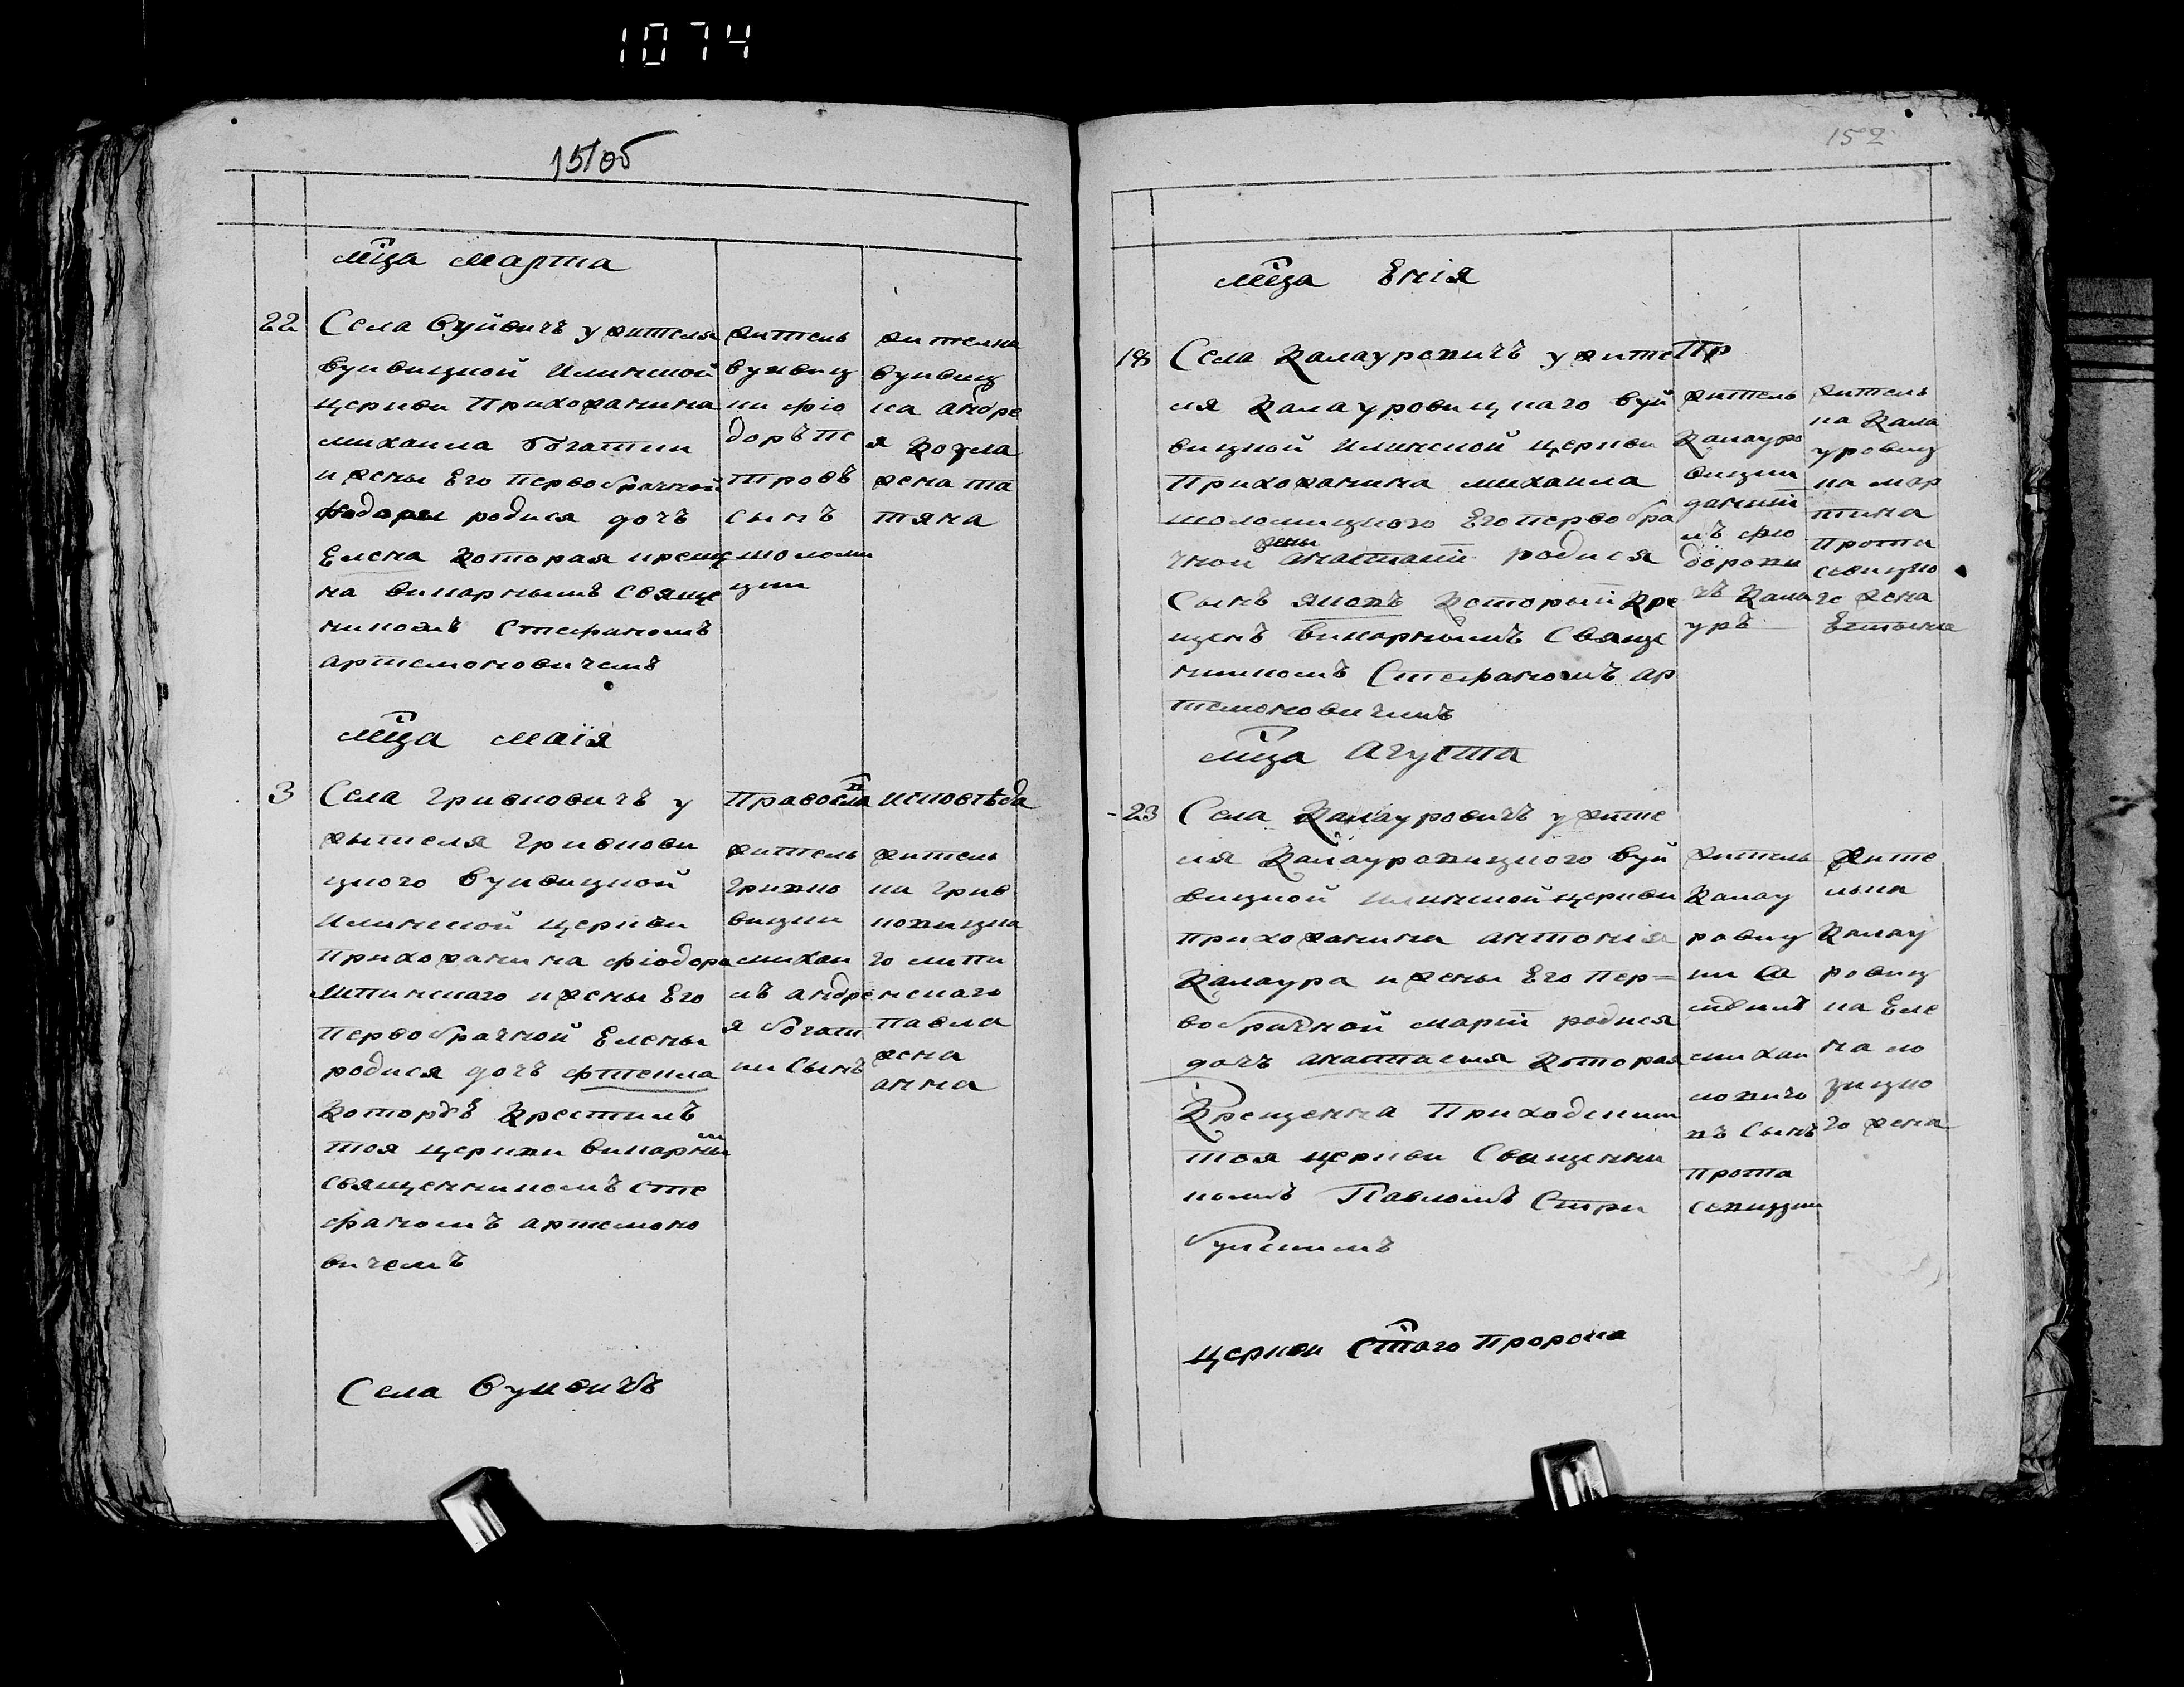 1074
151об
мца марта
22
Села Вуйвичъ у жителя
вуивицкой Илинской
церкви Прихожанина
михаила богатки
и жены Его первобрачной
родися дочъ
Елена Которая креще
на викарнымъ Свяще
никомъ Стефаномъ
артемоновичемъ
житель
вуивиц
ки фіо
доръ пе
тровъ
сынъ
шоломи
цки
жителка
вуивиц
ка андре
я Козла
жена та
тяна
мца маія
3
Села Гривковичъ у
жытеля Гривкови
цкого Вуивицкой
Илинской церкви
Прихожанина фіодора
Липинскаго и жены Его
Первобрачной Елены
родися дочъ фтекла
Которую Крестилъ
тоя церкви викарны
священникомъ Сте
фаномъ артемоно
вичемъ
Православ
житель
Гривко
вицки
михаи
лъ андре
я богат
ки Сынъ
исповѣда
житель
ка Грив
ковицка
го липи
нскаго
павла
жена
анна
Села Вуивичъ
152
мца Енія
18
Села Калауровичъ у жите
ля Калауровицкаго Вуй
вицкой Илинской церкви
Прихожанина михаила
шоломицкого Его первобра
чной жены анастасіи родися
Сынъ яковъ Который Кре
щенъ Викарнымъ Свяще
нникомъ Стефаномъ ар
темоновичимъ
Пр
житель
Калауро
вицки
даниі
лъ фіо
дорови
чъ Кала
уръ
житель
ка Кала
уровиц
ка мар
тина
Прота
севицко
го жена
мца Агуста
23
Села Калауровичъ у жите
ля Калауровицкого Вуй
вицкой Илинской церкви
прихожанина антонія
Калаура и жены Его пер=
вобрачной маріи родися
дочъ анастасия Которая
Крещенна Приходским
тоя церкви Священни
комъ Павломъ Стри
буцкимъ
житель
Калау
ровиц
ки
михаи
лович
въ Сынъ
прота
севицки
жите
лька
Калау
ровиц
ка Еле
на ко
зицко
го жена
церкви Стаго Пророка